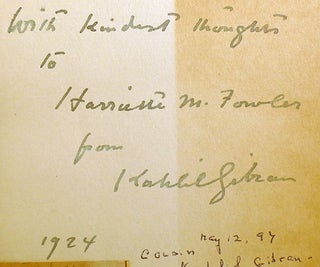 With Kindest thoughts
to
Harriette M. Fowler
from
Kahlil Gibran
1924
May 12, 94
Cousin
Kahlil Gibran -